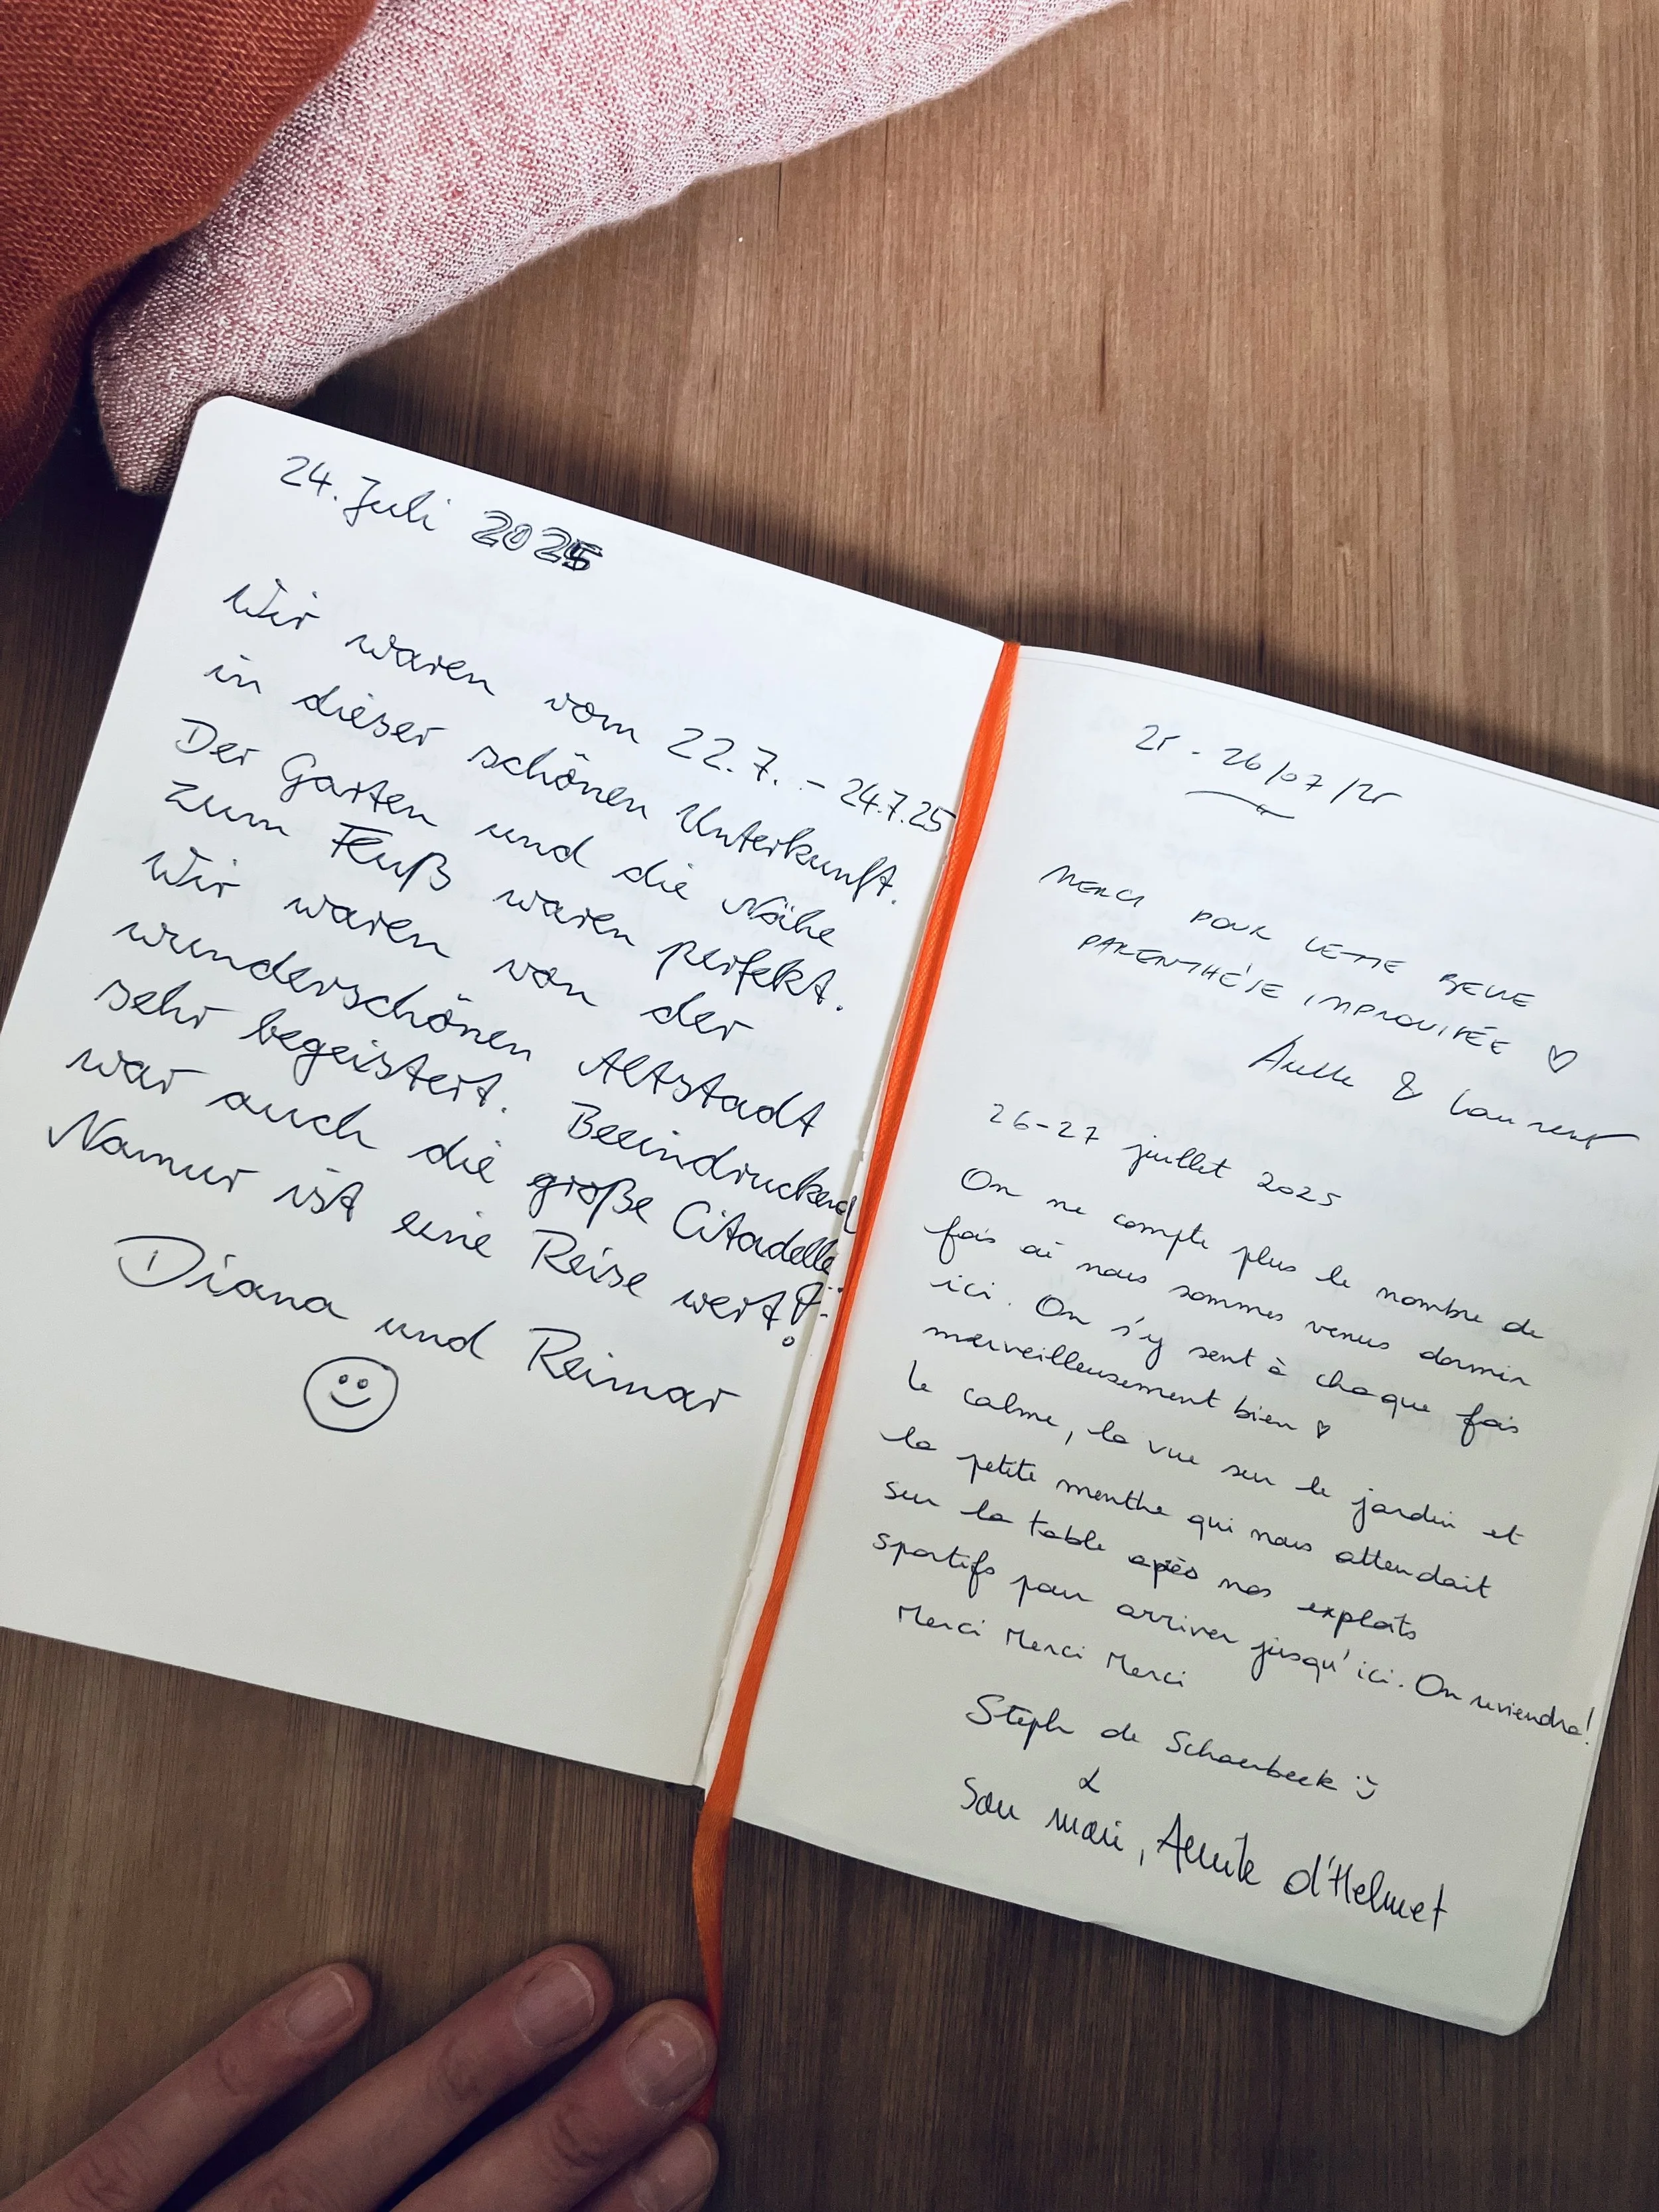 24. Juli 2025
Wir waren vom 22.7. – 24.7.25
in dieser schönen Unterkunft.
Der Garten und die Nähe
zum Fluß waren perfekt.
Wir waren von der
wunderschönen Altstadt
sehr begeistert. Beeindruckend
war auch die große Citadelle.
Namur ist eine Reise wert!
Diana und Reimar
25 - 26/07/25
MERCI POUR CETTE BELLE
PARENTHÈSE IMPROVISÉE ♡
& Laurent
26-27 juillet 2025
On ne compte plus le nombre de
fois où nous sommes venus dormir
ici. On s'y sent à chaque fois
merveilleusement bien ♡
Le calme, la vue sur le jardin et
la petite menthe qui nous attendait
sur la table après nos exploits
sportifs pour arriver jusqu'ici. On reviendra!
Merci Merci Merci
Steph de Schaerbeek :)
&
Son mari, d'Helmet